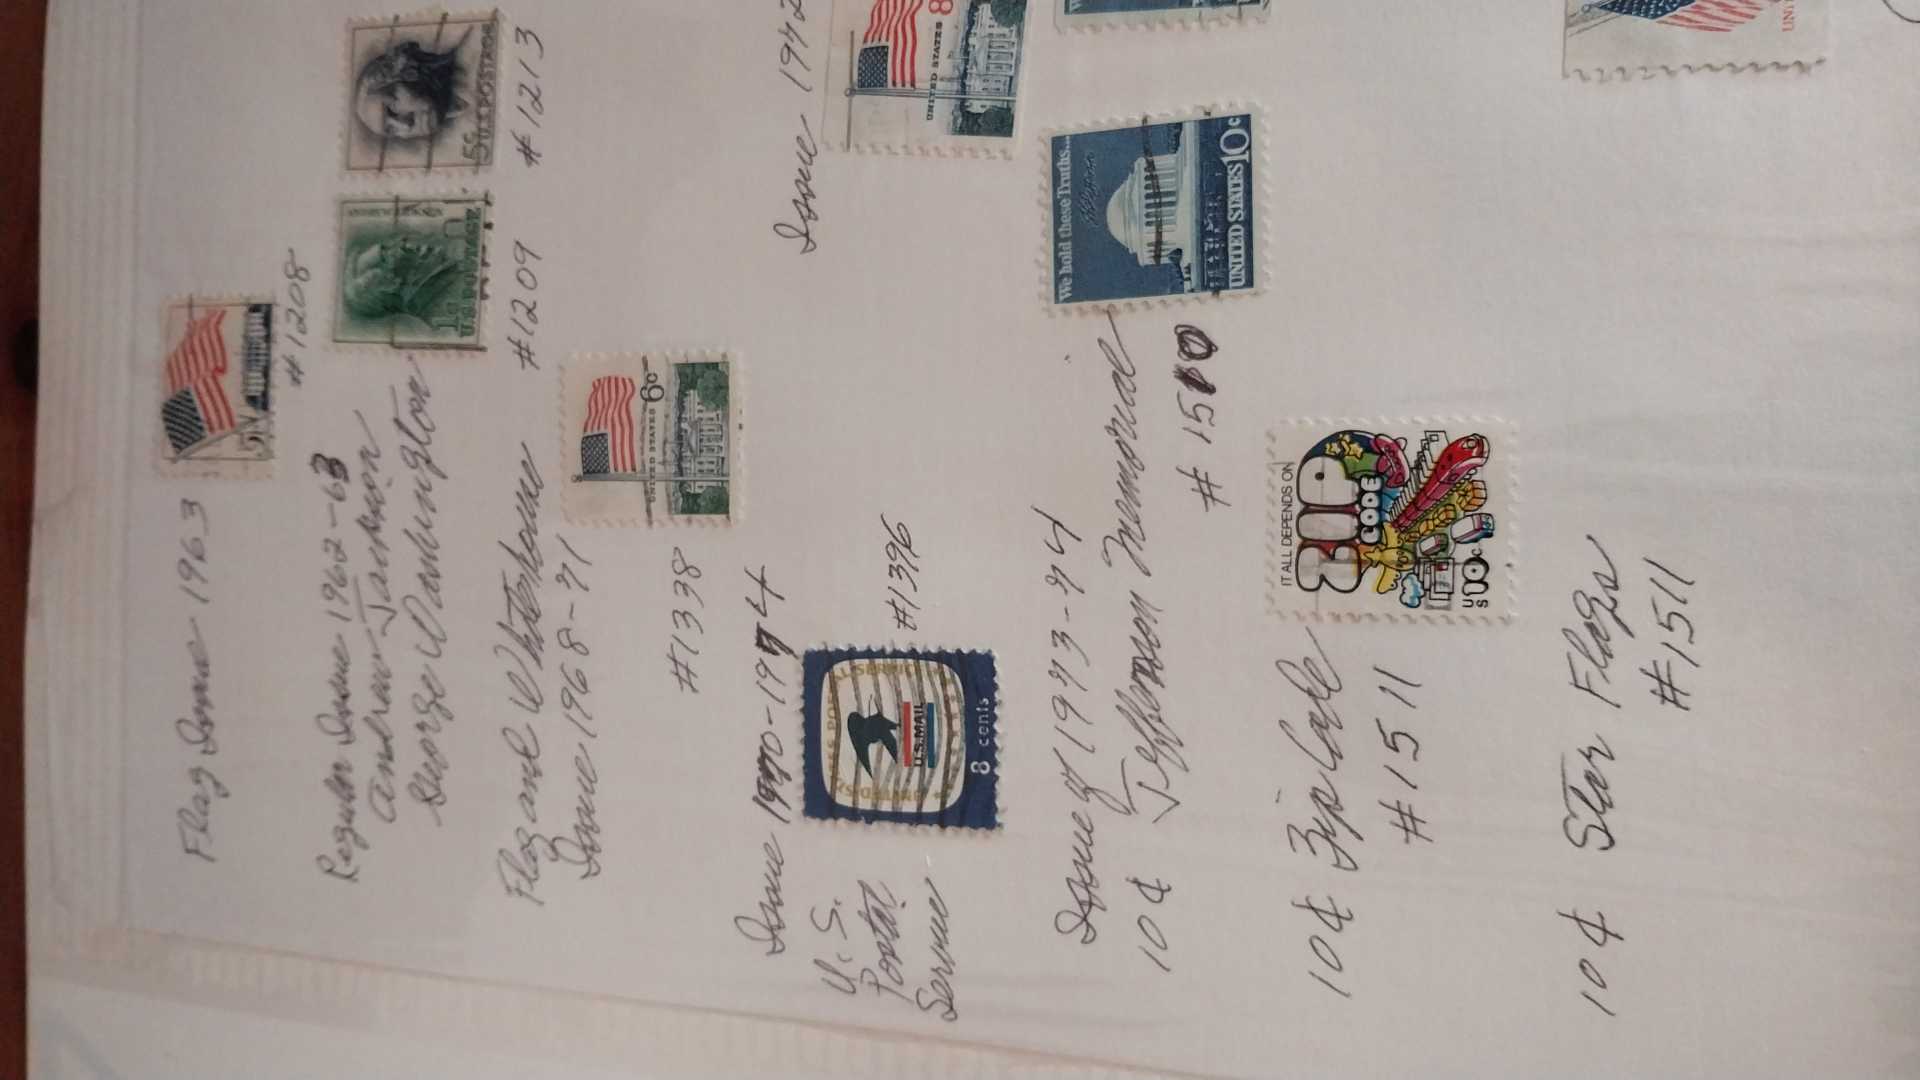 Flag Issue 1963
5¢
#1208
Regular Issue 1962-63
Andrew Jackson
George Washington
1¢
U.S. POSTAGE
#1209
5¢
U.S. POSTAGE
#1213
Flag and Whitehouse
Issue 1968-71
UNITED STATES 6c
#1338
Issue 1970-1974
U.S.
Postal
Service
U.S. MAIL
8 cents
#1396
Issue 1972
UNITED STATES 8
Issue of 1973-74
10¢ Jefferson Memorial
# 1510
We hold these Truths...
UNITED STATES 10c
10¢ Zip Code
#1511
IT ALL DEPENDS ON
ZIP
CODE
US 10c
10¢ Star Flags
#1511